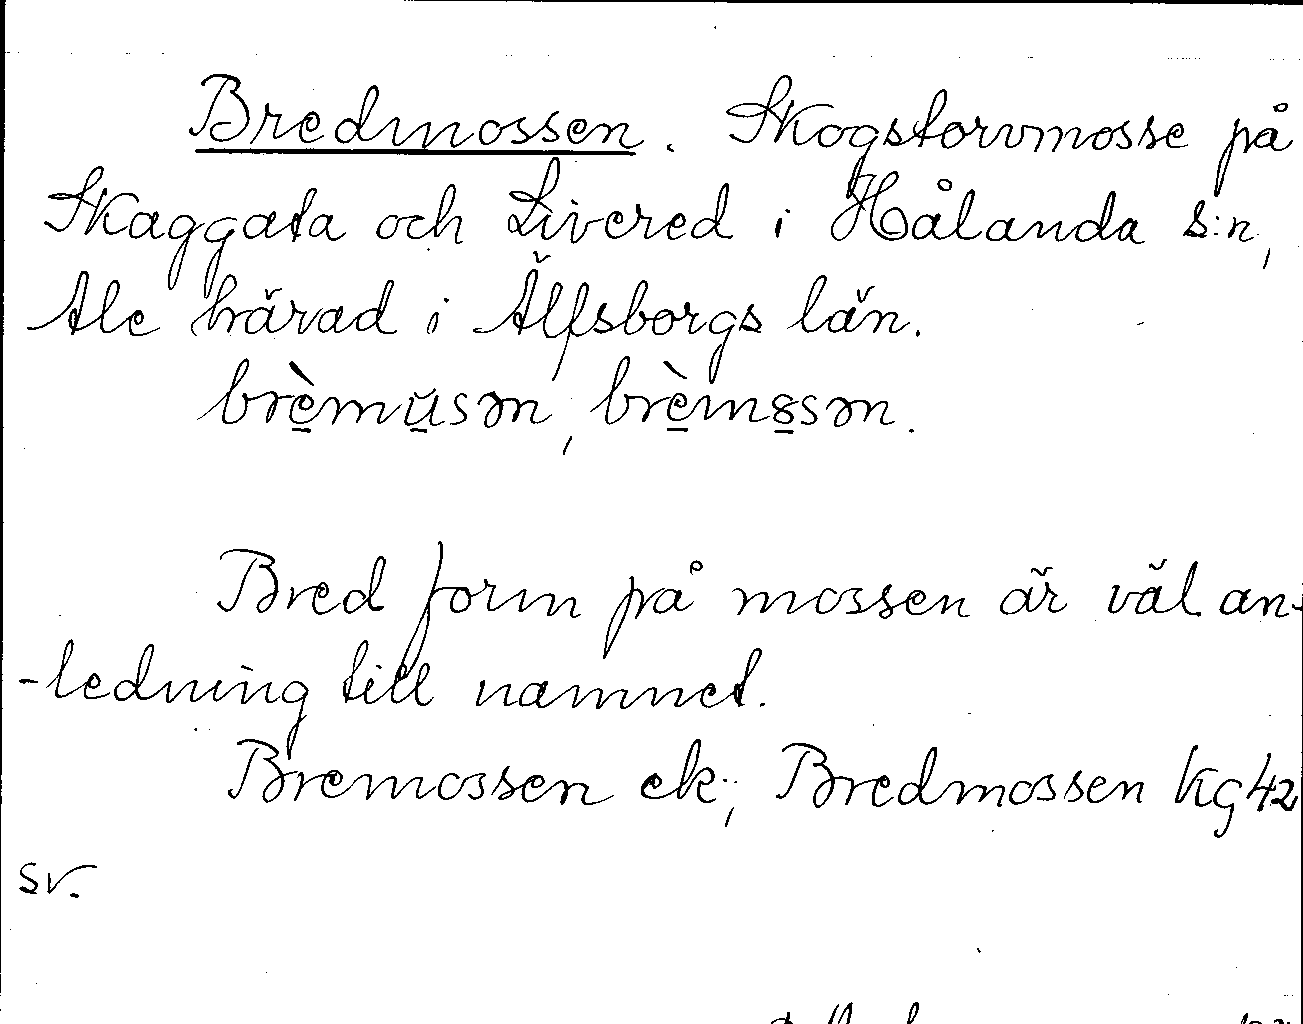 Bredmossen. Skogstorvmosse på
Skaggata och Livered i Hålanda s:n,
Ale härad i Älfsborgs län.
brèmu̇sən, brèm8sən.
Bred form på mossen är väl an-
-ledning till namnet.
Bremossen ek.; Bredmossen Kg 42
sv.